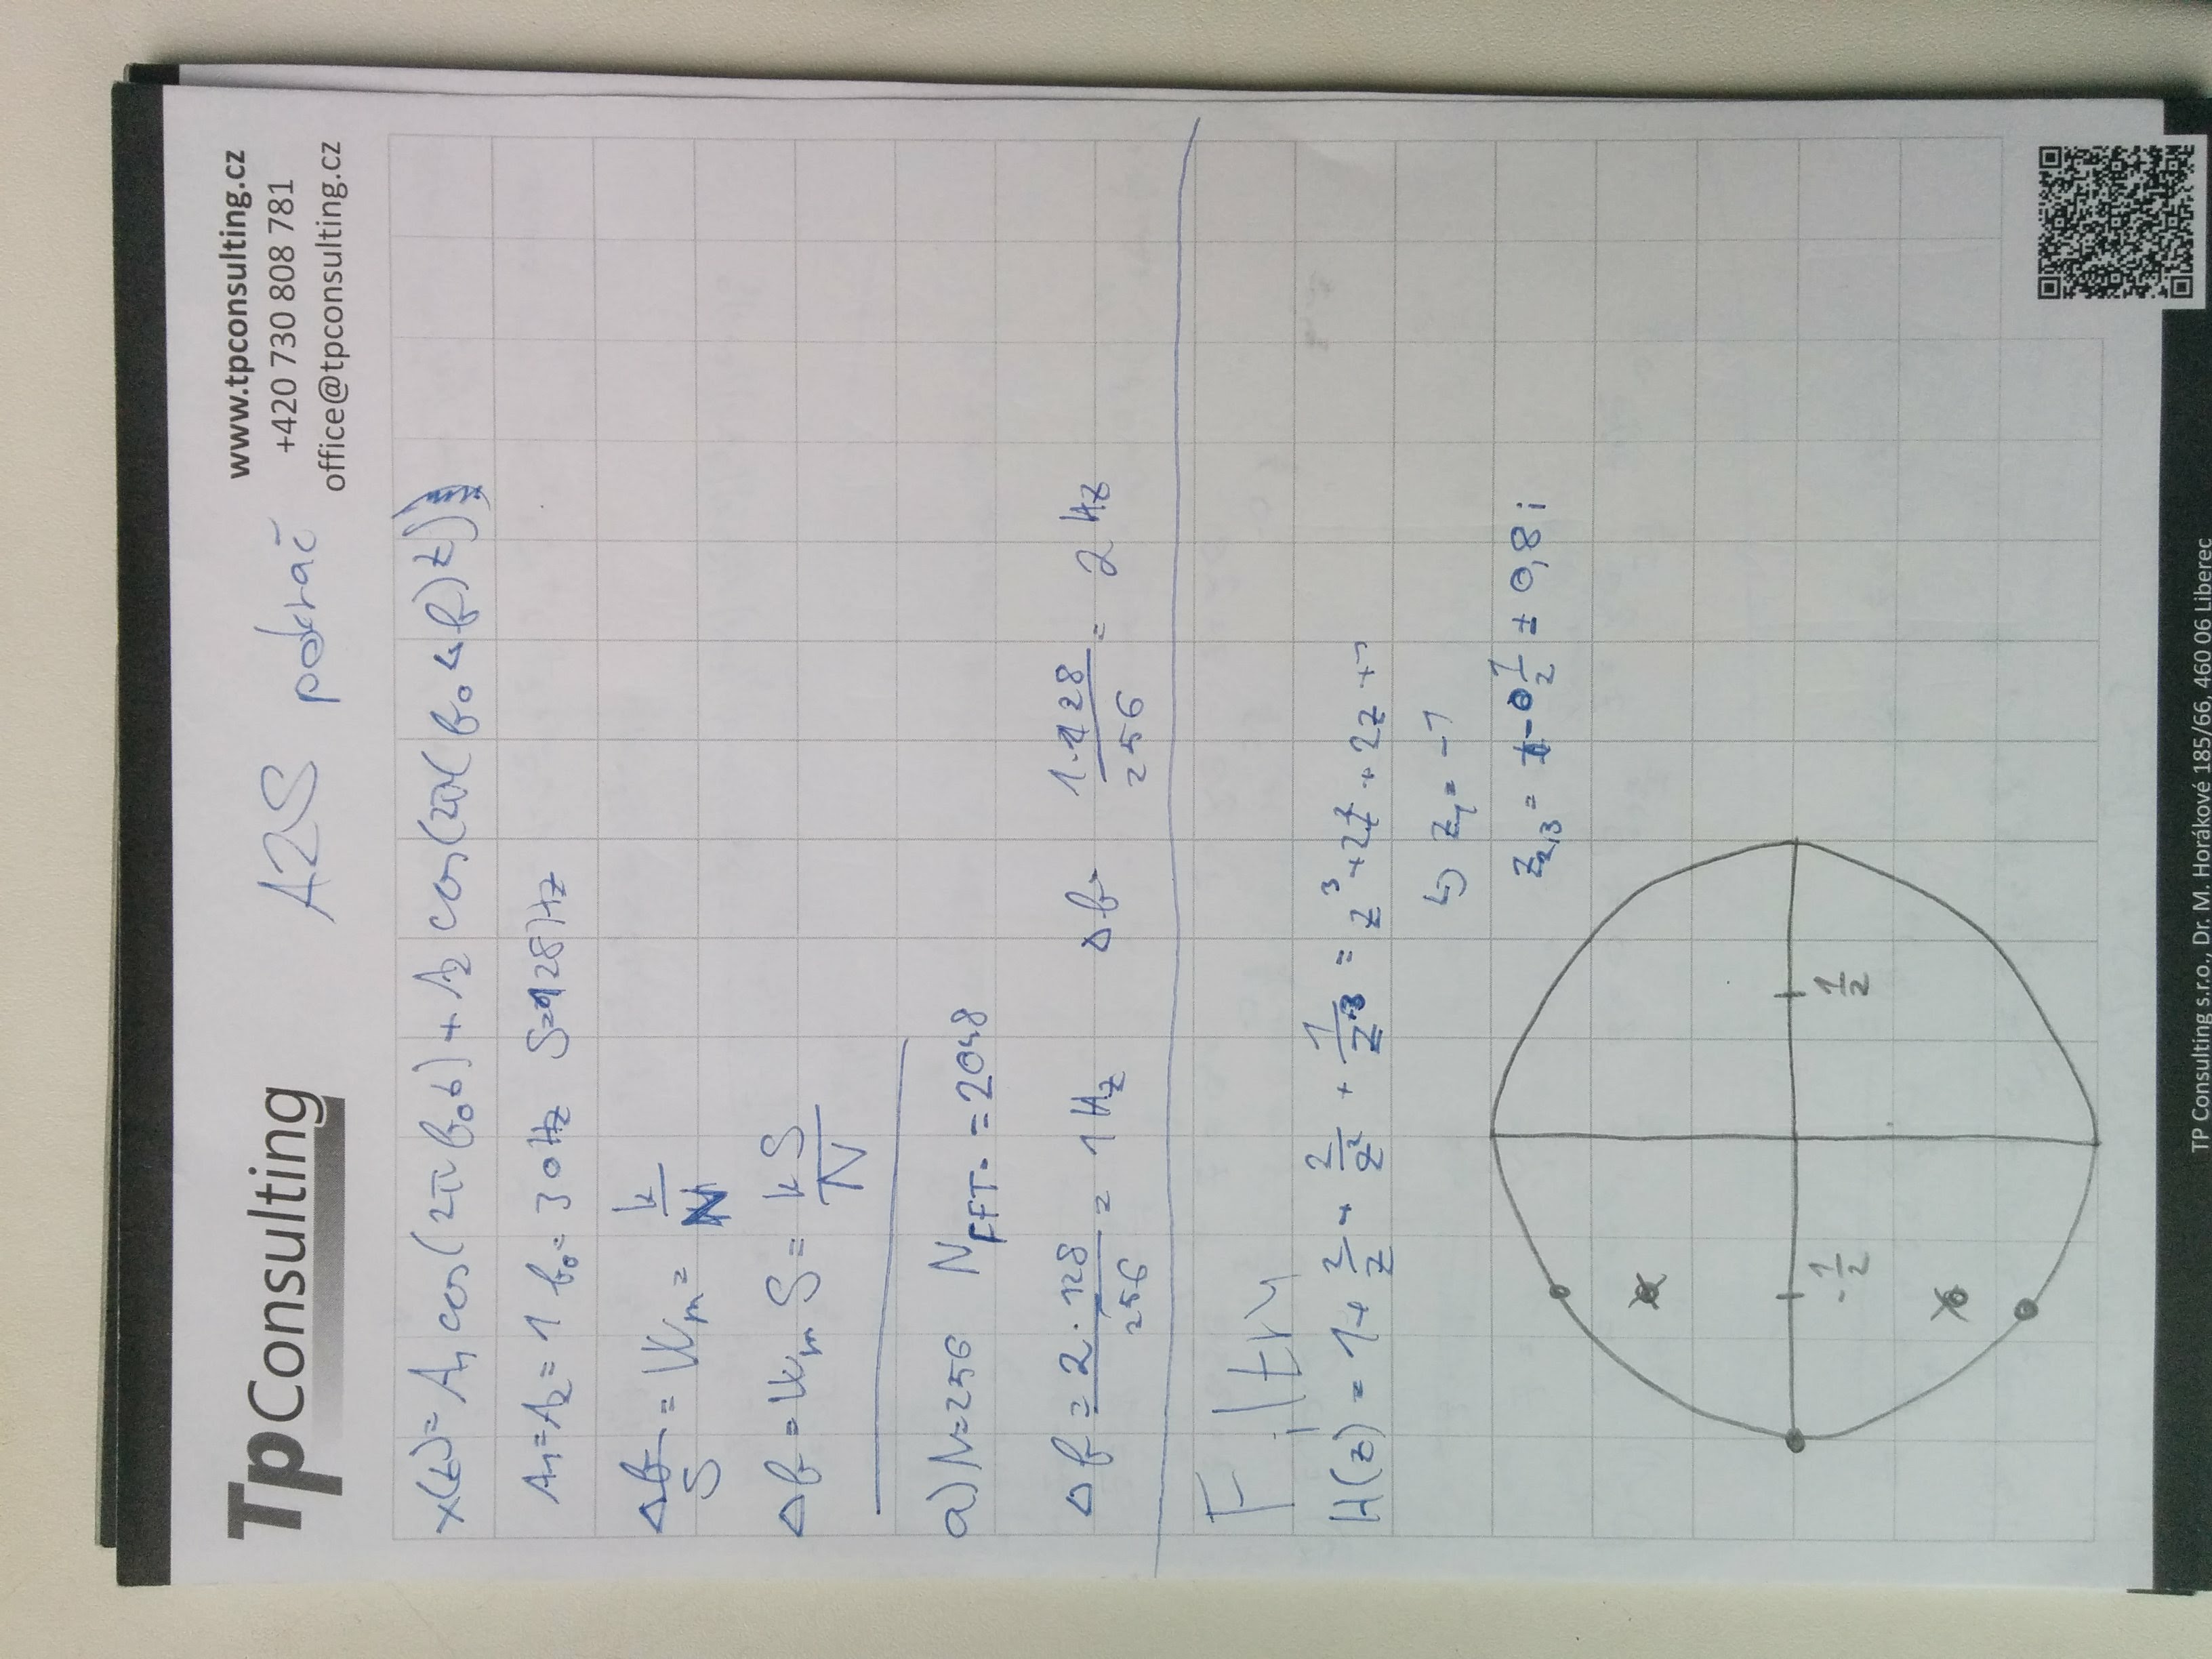 TpConsulting
www.tpconsulting.cz
+420 730 808 781
office@tpconsulting.cz
A2S pokrač
x(t) = A₁ cos(2π f₀ t) + A₂ cos(2π(f₀ Δf) t)
A₁=A₂=1 f₀=30Hz S=128Hz
Δf/S = Wₘ = k/N
Δf = Wₘ S = kS/N
a) N=256 N_FFT. = 2048
Δf = 2·128/256 = 1Hz Δf 1·128/256 = 2 Hz
Filtry
H(z) = 1 + 2/z + 2/z² + 1/z³ = z³ + 2z² + 2z + 1
↳ z₁ = -1
z₂,₃ = - 1/2 ± 0,8 i
-1/2 1/2
TP Consulting s.r.o., Dr. M. Horákové 185/66, 460 06 Liberec